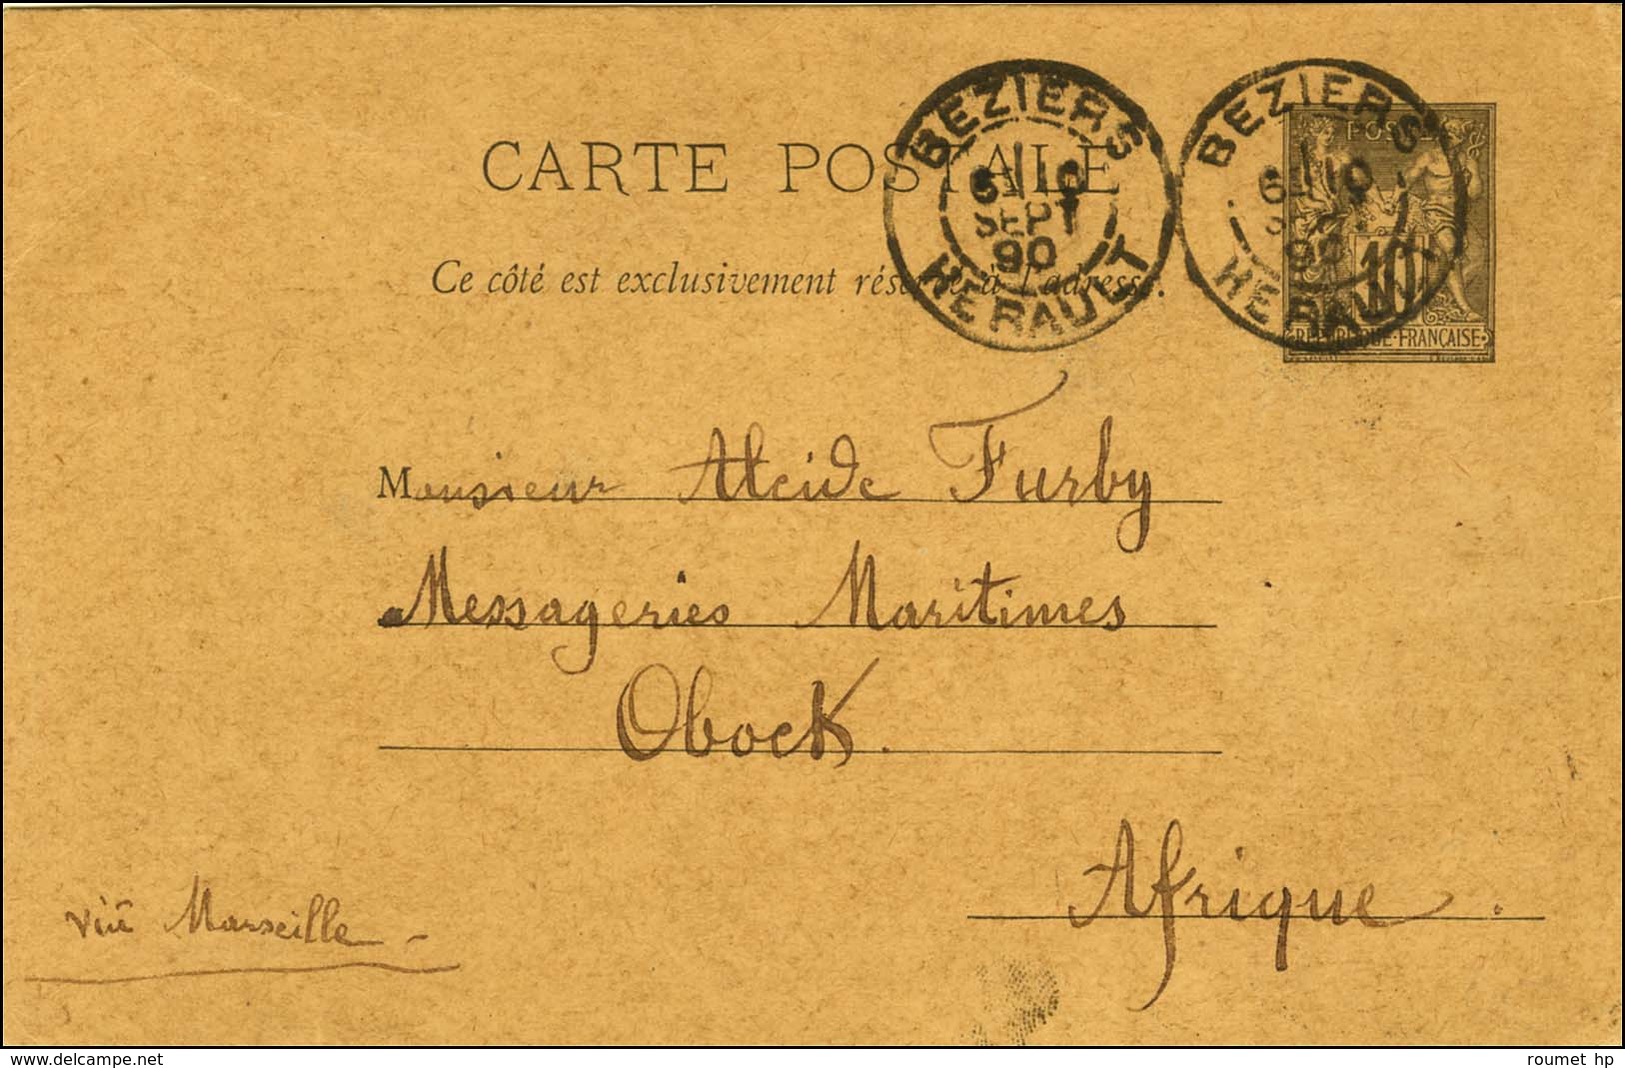 CARTE POSTALE
Ce côté est exclusivement réservé à l'adresse.
BEZIERS
10
SEPT
90
HERAULT
BEZIERS
10
90
HERAULT
POSTE
10
REPUBLIQUE FRANÇAISE
Monsieur Alcide Furby
Messageries Maritimes
Obock.
Afrique.
viâ Marseille -
www.delcampe.net
roumet hp